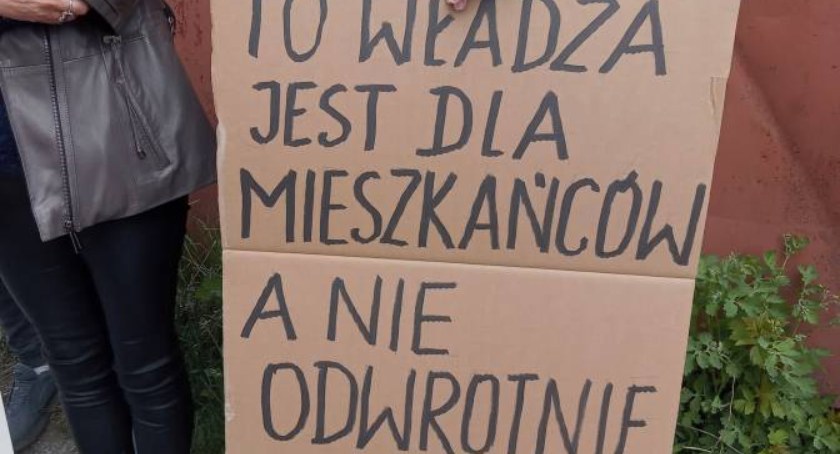 TO WŁADZA
JEST DLA
MIESZKAŃCÓW
A NIE
ODWROTNIE